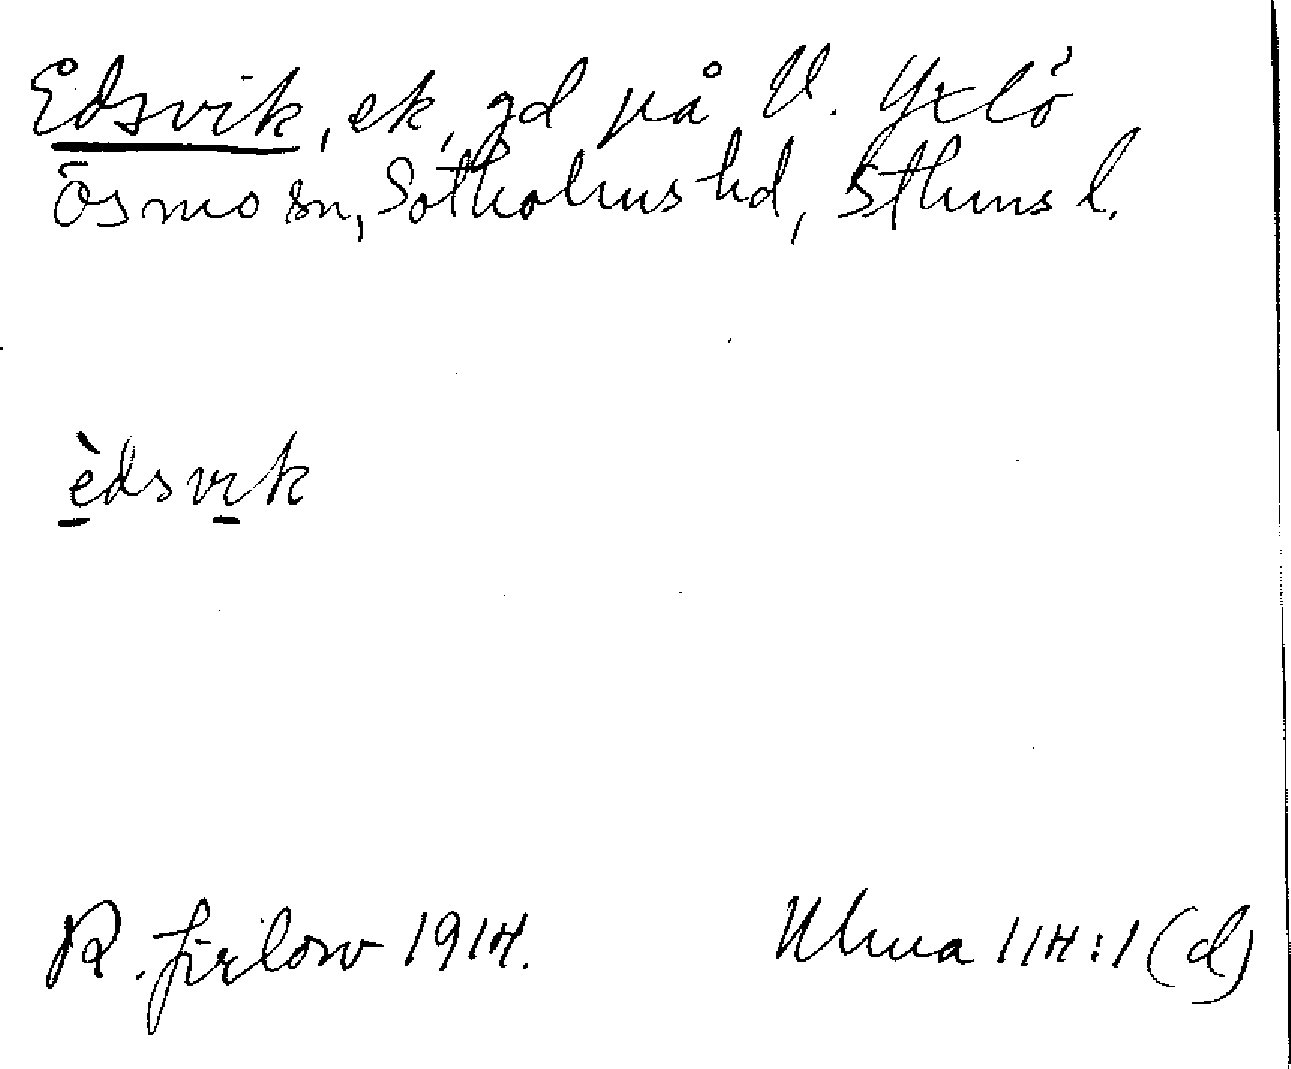 Edsvik, ek, gd på V. Yxlö
Ösmo sn, Sotholms hd, Sthms l.
èdsvik
R. Jirlow 1914.
Ulma 114:1 (d)